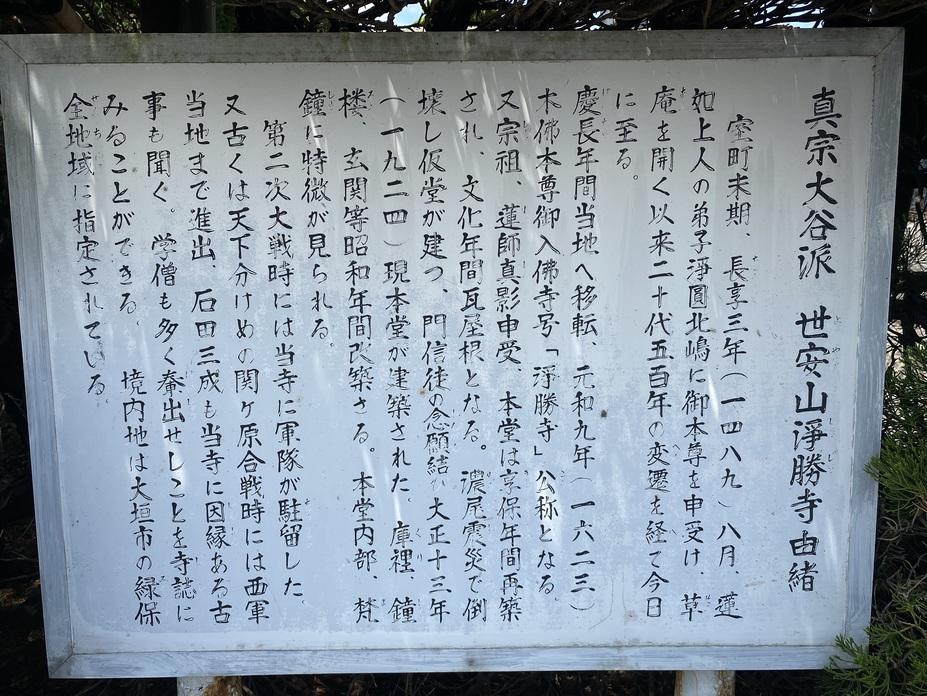 真宗大谷派 世安山淨勝寺由緒
室町末期、長享三年(一四八九)八月、蓮
如上人の弟子淨圓北嶋に御本尊を申受け、草
庵を開く以来二十代五百年の変遷を経て今日
に至る。
慶長年間当地へ移転、元和九年(一六二三)
木佛本尊御入佛寺号「淨勝寺」公称となる。
又宗祖、蓮師真影申受、本堂は享保年間再築
され、文化年間瓦屋根となる。濃尾震災で倒
壊し仮堂が建つ、門信徒の念願結い大正十三年
(一九二四)現本堂が建築された。庫裡、鐘
楼、玄関等昭和年間改築さる。本堂内部、梵
鐘に特微が見られる。
第二次大戦時には当寺に軍隊が駐留した、
又古くは天下分けめの関ケ原合戦時には西軍
当地まで進出、石田三成も当寺に因縁ある古
事も聞く。学僧も多く輩出せしことを寺誌に
みることができる。 境内地は大垣市の緑保
全地域に指定されている。